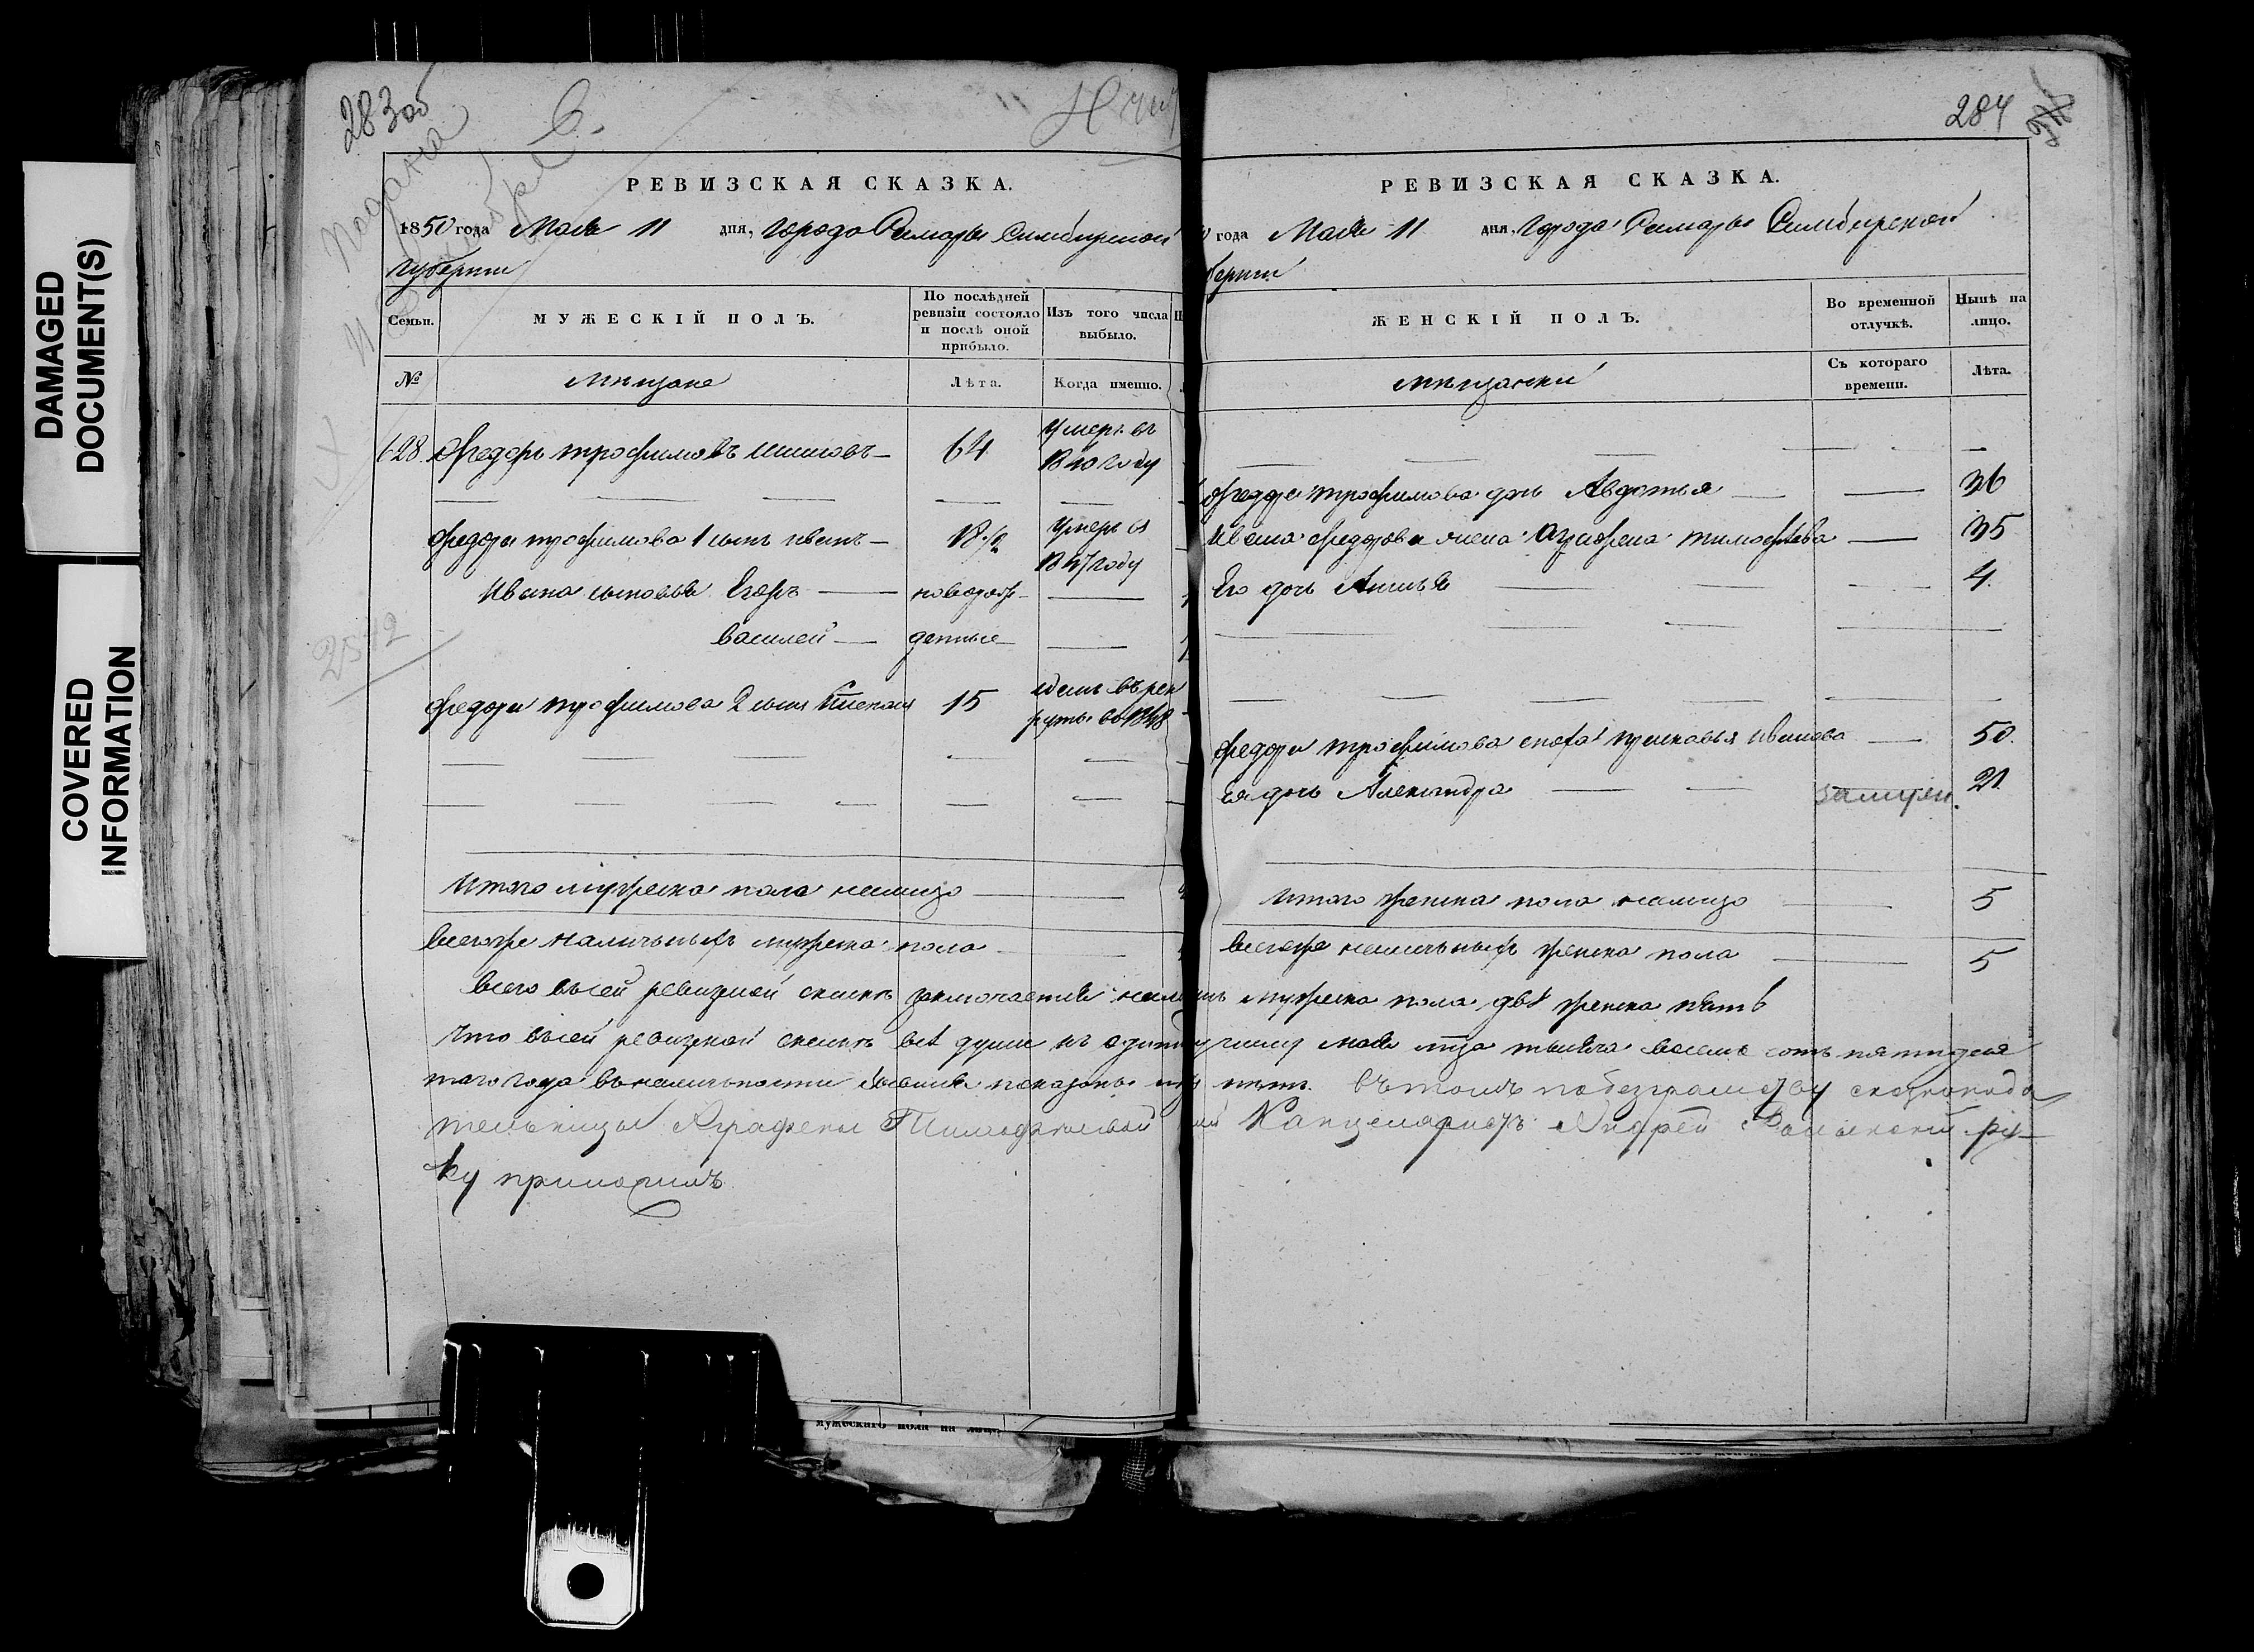 DAMAGED
DOCUMENT(S)
COVERED
INFORMATION
283об
Подана
С.
РЕВИЗСКАЯ СКАЗКА.
1850 года Маiя 11 дня, города Самары Симбирской
губернiи
Семьи.
МУЖЕСКIЙ ПОЛЪ.
По послѣдней
ревизiи состояло
и послѣ оной
прибыло.
Изъ того числа
выбыло.
№
мѣщане
Лѣта.
Когда именно.
628 Федоръ трофимовъ 64 умеръ въ
1840 году
федора трофимова 1 сынъ иванъ 18 1/2 умеръ въ
1847 году
Ивана сыновья Егоръ новорож
василей денные
федора трофимова 2 сынъ 15 въ рек
руты въ 1848
Итого мужеска пола налицо
Всегоже наличныхъ мужеска пола
284
РЕВИЗСКАЯ СКАЗКА.
года Маiя 11 дня, города Самары Симбирской
бернiи
ЖЕНСКIЙ ПОЛЪ.
Во временной
отлучкѣ.
Нынѣ на
лицо.
мѣщанки
Съ котораго
времени.
Лѣта.
федора трофимова дочь Авдотья 36
Ивана федорова жена аграфена тимофѣева 35
Его дочь 4
федора трофимова сноха прасковья иванова 50
Ея дочь Александра замужем. 21
Итого женска пола налицо 5
всегоже наличныхъ женска пола 5
Всего въсей ревизкой сказкѣ заключается мужеска пола двѣ женска пять
Что въсей ревизкой сказкѣ всѣ души къ числу маiя тысяча восемь сотъ пятидеся
таго года въналичности бывшiя показаны въ томъ побезграмотству сказкопода
тельницы Аграфены Тимофѣевой Канцеляристъ Андрей ру
ку приложилъ
мужескаго пола на лицо